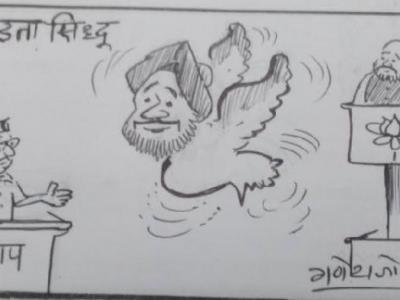 ड़ता सिध्दू
ाप
गणेश जो